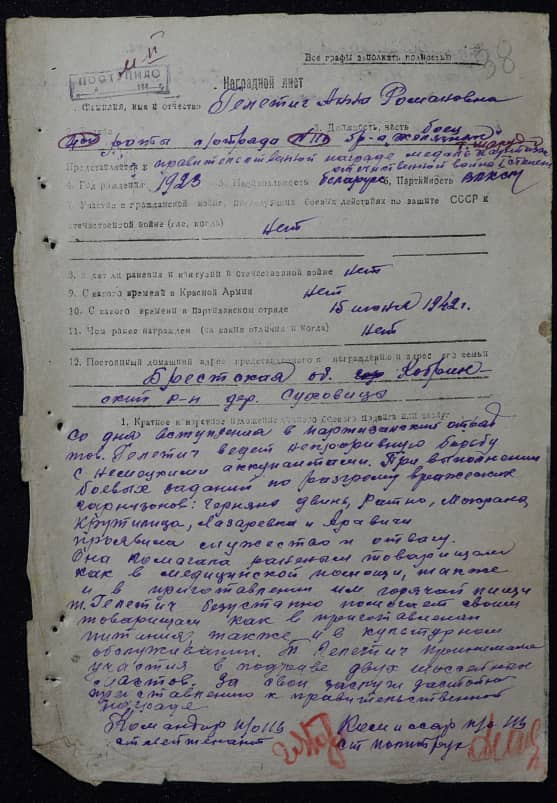 Все графы заполнять полностью
38
ПОСТУПИЛО
Наградной лист
1. Фамилия, имя и отчество Гелетич Анна Романовна
3. Должность, часть боец
рота п/отряда бр-а
Представляется к правительственной награде медаль
отечественной войны
4. Год рождения 1923 5. Национальность беларус 6. Партийность ВЛКСМ
7. Участие в гражданской войне, последующих боевых действиях по защите СССР и
отечественной войне (где, когда) Нет
8. Имеет ли ранения и контузии в отечественной войне Нет
9. С какого времени в Красной Армии Нет
10. С какого времени в Партизанском отряде 15 июня 1942г.
11. Чем ранее награжден (за какие отличия и когда) Нет
12. Постоянный домашний адрес представляемого к награждению и адрес его семьи
Брестская об. Кобрин
ский р-н дер. Суховицы
1. Краткое конкретное изложение личного боевого подвига или заслуг
Со дня вступления в партизанский отряд
тов. Гелетич ведет непрерывную борьбу
с немецкими аккупантами. При выполнении
боевых заданий по разгрому вражеских
гарнизонов: Черняны двинь, Ратно, Мокраны,
Крутилица, Лазаревка и Аравичи
проявила мужество и отвагу.
Она помагала раненым товарищам
как в медицинской помощи, также
и в приготовлении им горячей пищи
т. Гелетич безустанно помогает своим
товарищам как в приготовлении
питания, также и в культурном
обслуживании. Т. Гелетич принимала
участия в подрыве двух шоссейных
мостов. За свои заслуги достойна
представлению к правительственной
награде
Командир п/о Комиссар п/о
ст. лейтенант ст политрук